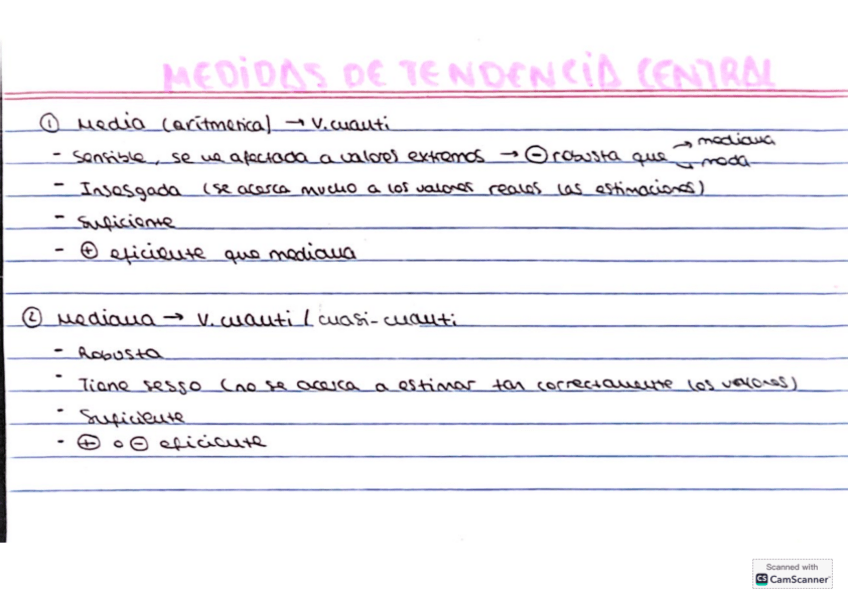 MEDIDAS DE TENDENCIA CENTRAL
① Media (aritmetica) → V.cuanti
- Sensible, se ve afectada a valores extremos → ⊖ robusta que → mediana
→ moda
- Insesgada (se acerca mucho a los valores reales las estimaciones)
- Suficiente
- ⊕ eficiente que mediana
② Mediana → V.cuanti / cuasi-cuanti
- Robusta
- Tiene sesgo (no se acerca a estimar tan correctamente los valores)
- Suficiente
- ⊕ o ⊖ eficiente
Scanned with
CS CamScanner